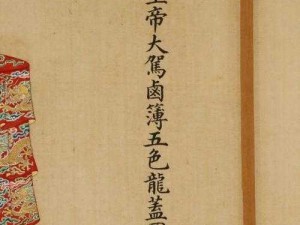 帝大駕鹵簿五色龍蓋